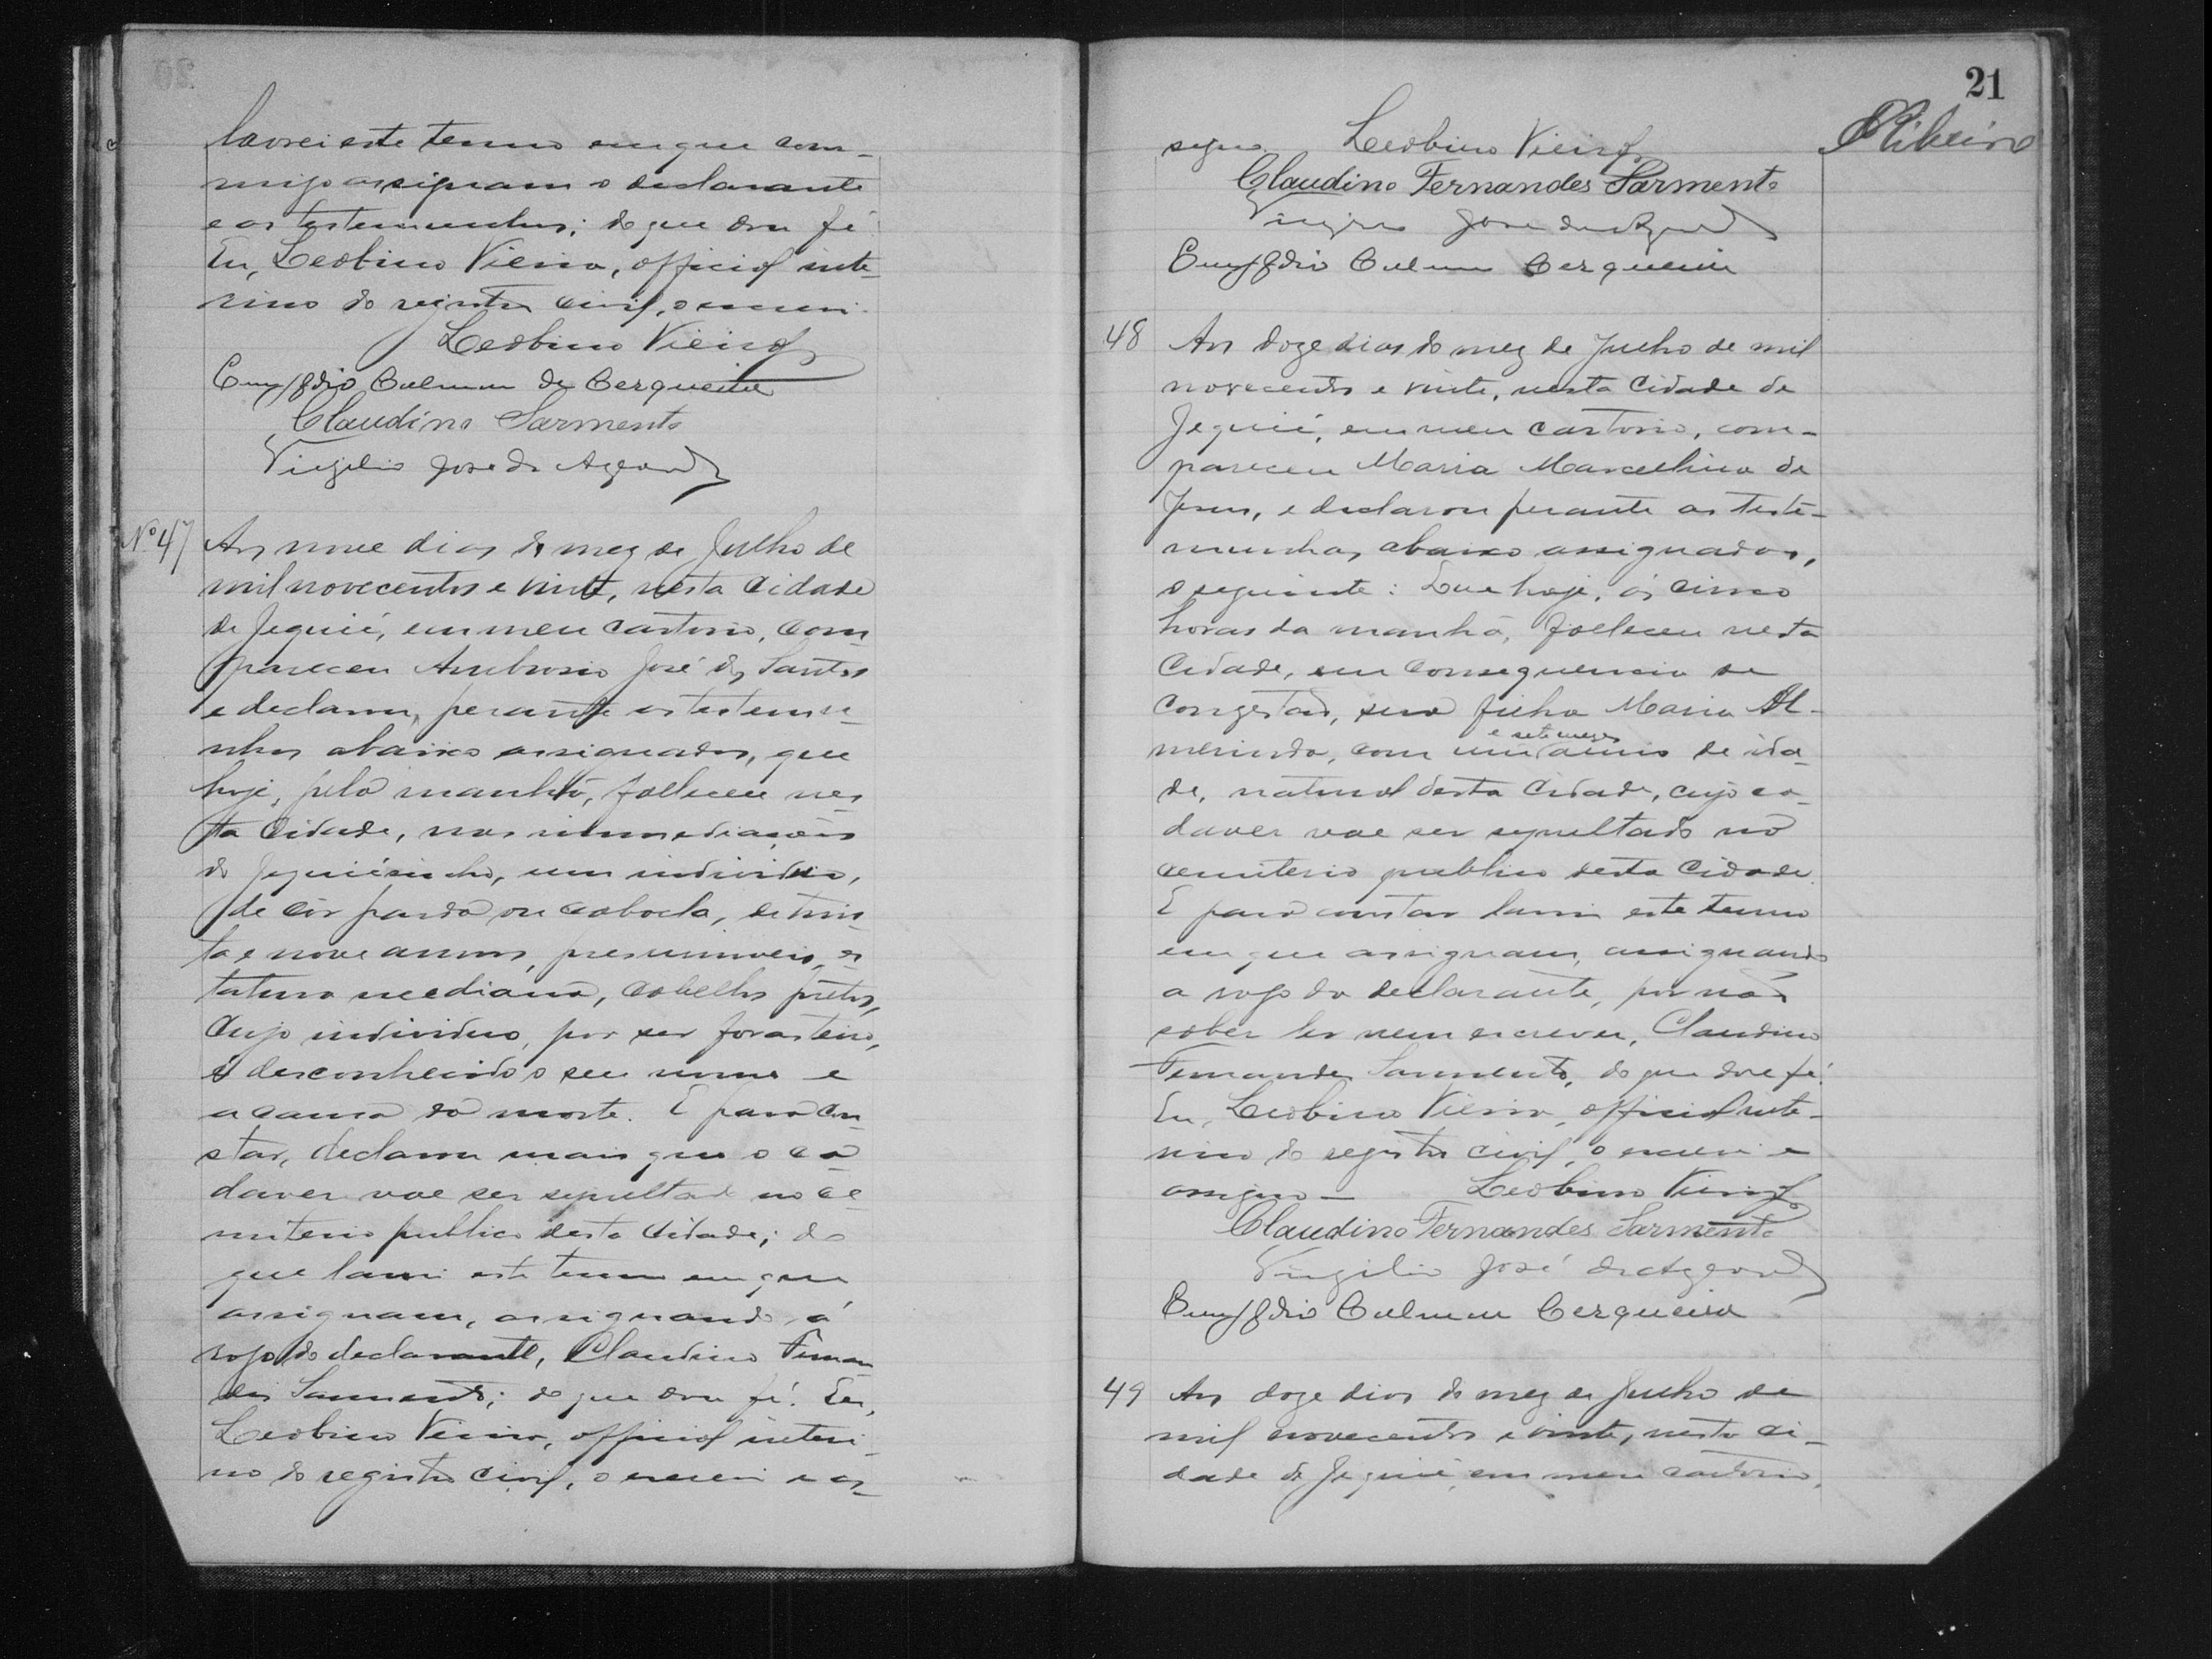 lavrei este termo em que com-
migo assignam o declarante
e as testemunhas; do que dou fé
Eu, Leobino Vieira, official inte-
rino do registro civil, o escrevi.
Leobino Vieira
Calmon de Cerqueira
Claudino Sarmento
Virgilio José de Azevedo
Nº 47
Aos nove dias do mez de Julho de
mil novecentos e vinte, nesta cidade
de Jequié, em meu cartorio, com-
pareceu Ambrosio José dos Santos
e declarou, perante as testemu-
nhas abaixo assignadas, que
hoje, pela manhã, falleceu nes-
ta cidade, nas immediações
do Jequiésinho, um individuo,
de côr parda ou cabocla, de trin-
ta e nove annos, presumiveis, es-
tatura mediana, cabellos pretos,
cujo individuo, por ser forasteiro,
é desconhecido o seu nome e
a causa da morte. E para con-
star, declarou mais que o ca-
daver vae ser sepultado no ce-
miterio publico desta cidade; do
que lavrei este termo em que
assignam, assignando á
rogo do declarante, Claudino Fernan-
des Sarmento; do que dou fé. Eu,
Leobino Vieira, official interi-
no do registro civil, o escrevi e as-
21
Ribeiro
signo. Leobino Vieira
Claudino Fernandes Sarmento
Virgilio José de Azevedo
Calmon Cerqueira
48
Aos doze dias do mez de Julho de mil
novecentos e vinte, nesta cidade de
Jequié, em meu cartorio, com-
pareceu Maria Marcellina de
Jesus, e declarou perante as teste-
munhas abaixo assignadas,
o seguinte: Que hoje, ás cinco
horas da manhã, falleceu nesta
cidade, em consequencia de
congestão, sua filha Maria Al-
merinda, com um e sete mezes annos de ida-
de, natural desta cidade, cujo ca-
daver vae ser sepultado no
cemiterio publico desta cidade.
E para constar lavrei este termo
em que assignam, assignando
a rogo da declarante, por não
saber ler nem escrever, Claudino
Fernandes Sarmento, do que dou fé.
Eu, Leobino Vieira, official inte-
rino do registro civil, o escrevi e
assigno - Leobino Vieira
Claudino Fernandes Sarmento
Virgilio José de Azevedo
Calmon Cerqueira
49
Aos doze dias do mez de Julho de
mil novecentos e vinte, nesta ci-
dade de Jequié em meu cartorio,